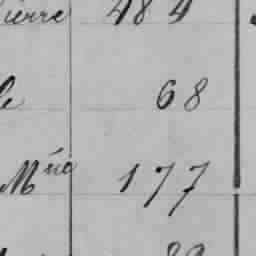 ierre 484
le 68
Mne 177